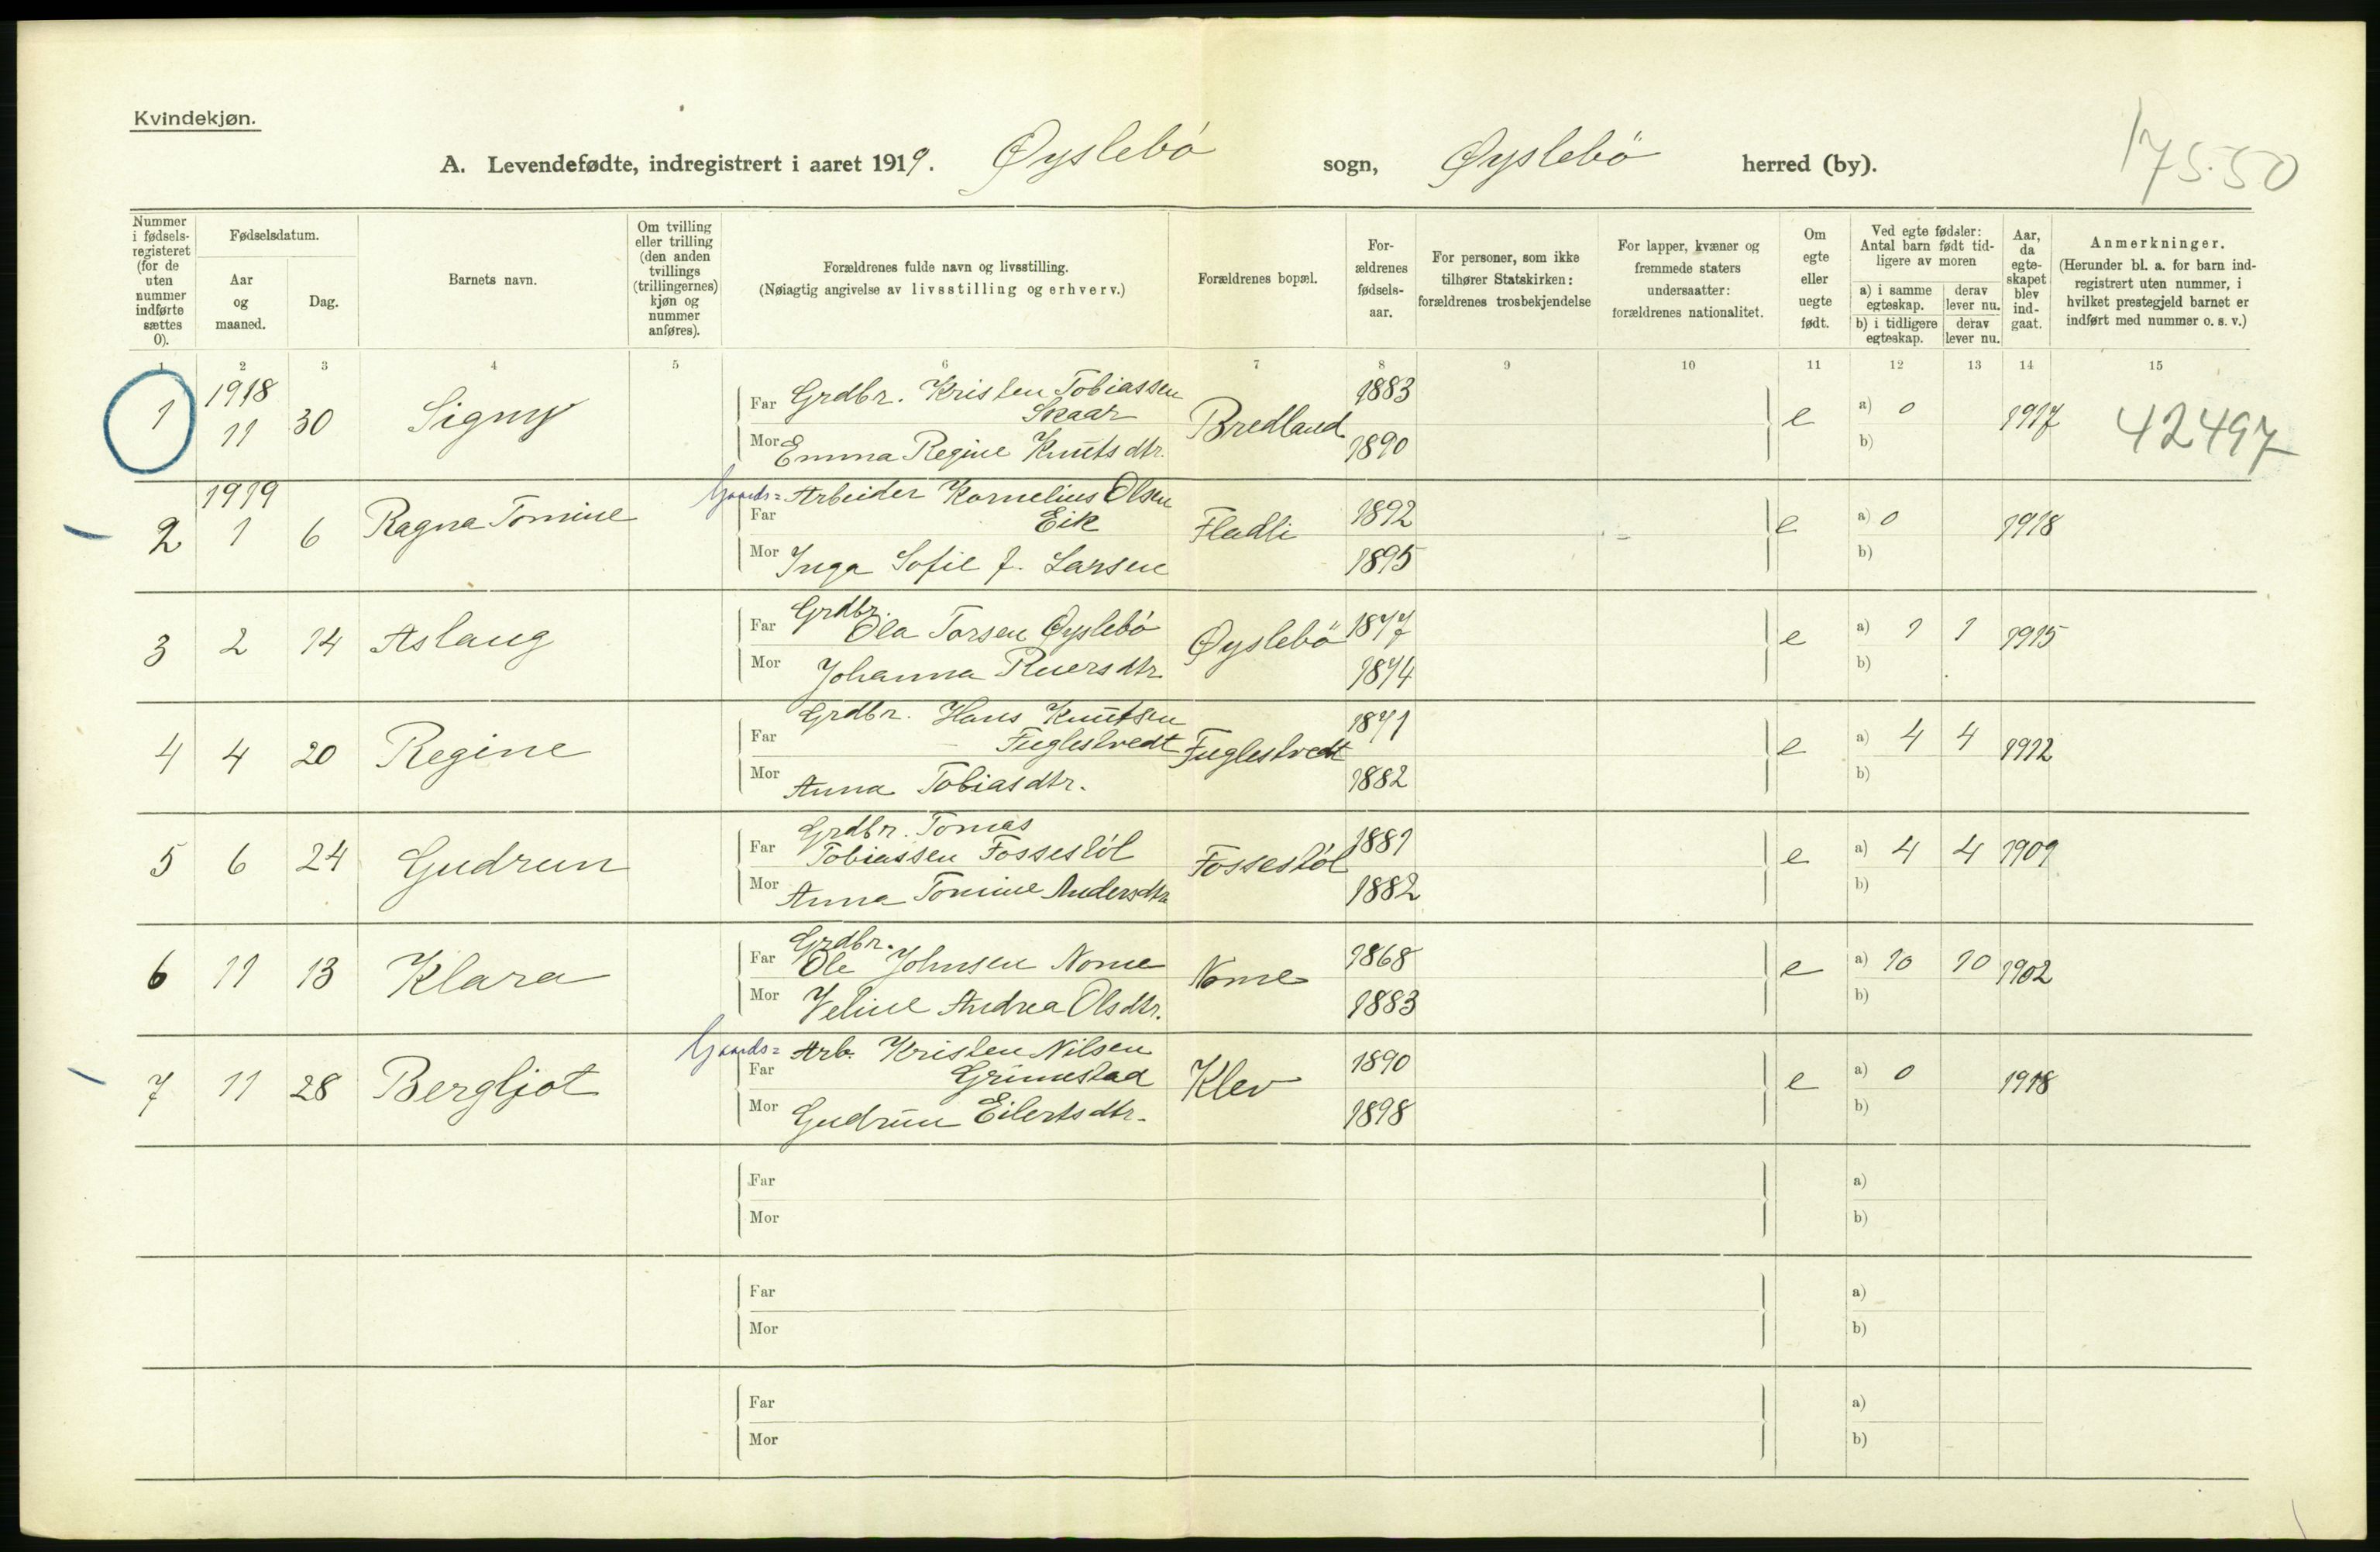 Kvindekjøn.
A. Levendefødte, indregistrert i aaret 1919. Øyslebö sogn, Øyslebö herred (by).
175.50
Nummer i fødselsregisteret (for de uten nummer indførte sættes 0).
Fødselsdatum.
Aar og maaned.
Dag.
Barnets navn.
Om tvilling eller trilling (den anden tvillings (trillingernes) kjøn og nummer anføres).
Forældrenes fulde navn og livsstilling.
(Nøiagtig angivelse av livsstilling og erhverv.)
Forældrenes bopæl.
Forældrenes fødselsaar.
For personer, som ikke tilhører Statskirken: forældrenes trosbekjendelse
For lapper, kvæner og fremmede staters undersaatter: forældrenes nationalitet.
Om egte eller uegte født.
Ved egte fødsler: Antal barn født tidligere av moren
a) i samme egteskap. derav lever nu.
b) i tidligere egteskap. derav lever nu.
Aar, da egteskapet blev indgaat.
Anmerkninger.
(Herunder bl. a. for barn indregistrert uten nummer, i hvilket prestegjeld barnet er indført med nummer o. s. v.)
1 2 3 4 5 6 7 8 9 10 11 12 13 14 15
1 1918 11 30 Signy Far Grdbr. Kristen Tobiassen Skaar Bredland 1883 e a) 0 1917 42497
Mor Emma Regine Knutsdtr. 1890 b)
2 1919 1 6 Ragna Tomine Far Gaards= Arbeider Kornelius Olsen Eik Fladli 1892 e a) 0 1918
Mor Inga Sofie f. Larsen 1895 b)
3 2 14 Aslaug Far Grdbr. Ola Torsen Øyslebö Øyslebö 1877 e a) 1 1 1915
Mor Johanna Ruersdtr. 1874 b)
4 4 20 Regine Far Grdbr. Hans Knutsen Fuglestvedt Fuglestvedt 1871 e a) 4 4 1912
Mor Anna Tobiasdtr. 1882 b)
5 6 24 Gudrun Far Grdbr. Tomas Tobiassen Fossestöl Fossestöl 1881 e a) 4 4 1909
Mor Anna Tomine Andersdtr. 1882 b)
6 11 13 Klara Far Grdbr. Ole Johnsen Nome Nome 1868 e a) 10 10 1902
Mor Veline Andrea Olsdtr. 1883 b)
7 11 28 Bergljot Far Gaards= Arb. Kristen Nilsen Grimestad Klev 1890 e a) 0 1918
Mor Gudrun Eilertsdtr. 1898 b)
Far a)
Mor b)
Far a)
Mor b)
Far a)
Mor b)